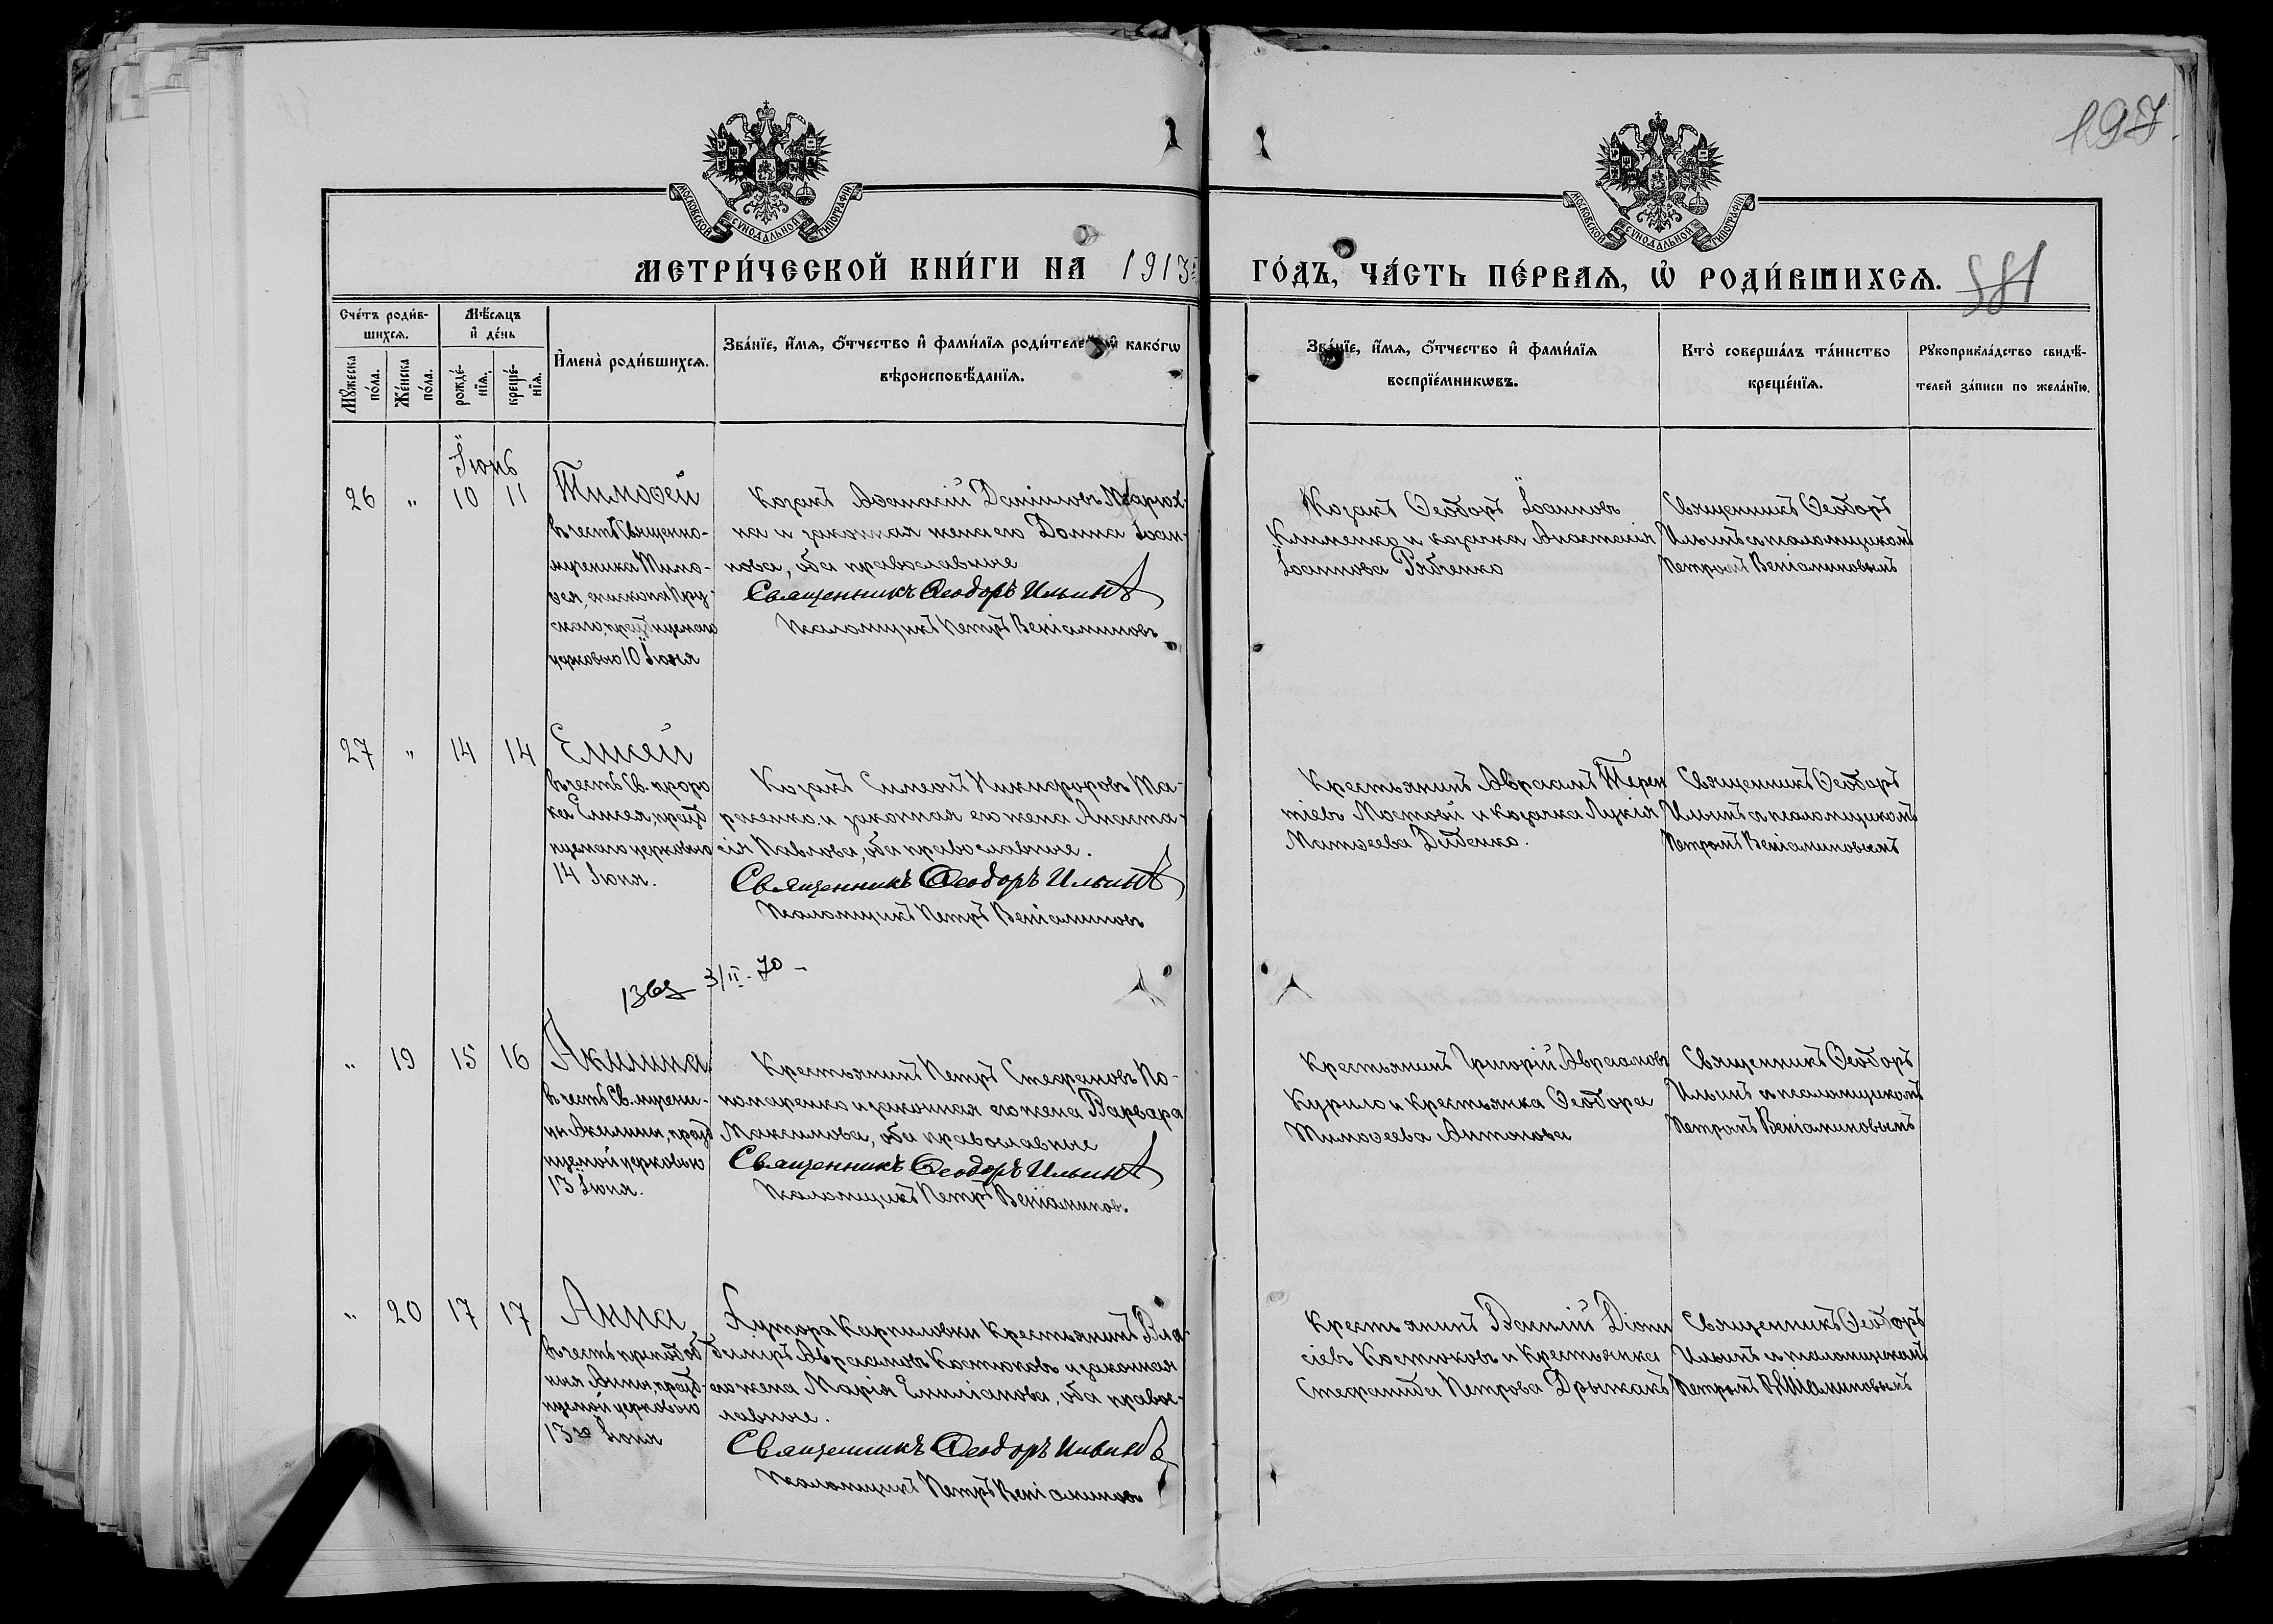 197.
МОСКОВСКОЙ СѴНОДАЛЬНОЙ ТИПОГРАФІИ
МОСКОВСКОЙ СѴНОДАЛЬНОЙ ТИПОГРАФІИ
МЕТРИ́ЧЕСКОЙ КНИ́ГИ НА 1913
ГО́ДЪ, ЧА́СТЬ ПЕ́РВАЯ, Ѡ РОДИ́ВШИХСѦ.
Счетъ роди́вшихсѧ.
Мꙋжеска по́ла.
Же́нска по́ла.
Мѣ́сѧцъ и҆ де́нь
рожде́нїѧ.
креще́нїѧ.
И҆мена̀ роди́вшихсѧ.
Зва́нїе, и҆́мѧ, ѻ҆́тчество и҆ фами́лїѧ роди́телей, и҆ како́гѡ
вѣроисповѣ́данїѧ.
Зва́нїе, и҆́мѧ, ѻ҆́тчество и҆ фами́лїѧ
воспрїе́мникѡвъ.
Кто̀ соверша́лъ та́инство
креще́нїѧ.
Рꙋкоприкла́дство свидѣ́-
телей за́писи по жела́нїю.
Іюнь
26 " 10 11
Тимоѳей
въ честь Священно-
мученика Тимо-
ѳея, епископа Пру-
скаго, празднуемаго
церковью 10 Іюня
Козакъ Аѳанасій Даніиловъ
на и законная жена его Домна Іоан-
нова, оба православные
Священникъ Ѳеодоръ Ильинъ
Псаломщикъ Петръ Веніаминовъ
Козакъ Ѳеодоръ Іоанновъ
Клименко и козачка Анастасія
Іоаннова Рябченко
Священникъ Ѳеодоръ
Ильинъ съ псаломщикомъ
Петромъ Веніаминовымъ
27 " 14 14
Елисей
въ честь Св. проро
ка Елисея, празд
нуемаго церковью
14 Іюня.
Козакъ Симеонъ Никифоровъ Та-
расенко и законная его жена Анаста-
сія Павлова, оба православные.
Священникъ Ѳеодоръ Ильинъ
Псаломщикъ Петръ Веніаминовъ
Крестьянинъ Авраамъ Терен
тіевъ Мостовой и козачка Лукія
Матѳеева Диденко.
Священникъ Ѳеодоръ
Ильинъ съ псаломщикомъ
Петромъ Веніаминовымъ
3/II-70 -
" 19 15 16
Акилина
въ честь Св. мучени-
цы Акилины, празд
нуемой церковью
13 Іюня.
Крестьянинъ Петръ Стефановъ По-
номаренко и законная его жена Варвара
Максимова, оба православные
Священникъ Ѳеодоръ Ильинъ
Псаломщикъ Петръ Веніаминовъ.
Крестьянинъ Григорій Авраамовъ
Курило и крестьянка Ѳеодора
Тимоѳеева Антонова
Священникъ Ѳеодоръ
Ильинъ съ псаломщикомъ
Петромъ Веніаминовымъ
" 20 17 17
Анна
въ честь преподоб
ныя Анны, празд-
нуемой церковью
13го Іюня
Хутора Карпиловки крестьянинъ Вла-
диміръ Авраамовъ Костюковъ и законная
его жена Марія Емиліанова, оба правос-
лавные.
Священникъ Ѳеодоръ Ильинъ
Псаломщикъ Петръ Веніаминовъ
Крестьянинъ Василій Діони
сіевъ Костюковъ и крестьянка
Стефанида Петрова Дрыжакъ
Священникъ Ѳеодоръ
Ильинъ съ псаломщикомъ
Петромъ Веніаминовымъ